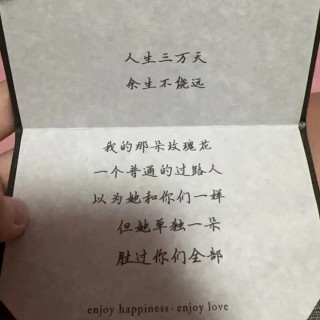 人生三万天
余生不绕远
我的那朵玫瑰花
一个普通的过路人
以为她和你们一样
但她单独一朵
胜过你们全部
enjoy happiness · enjoy love